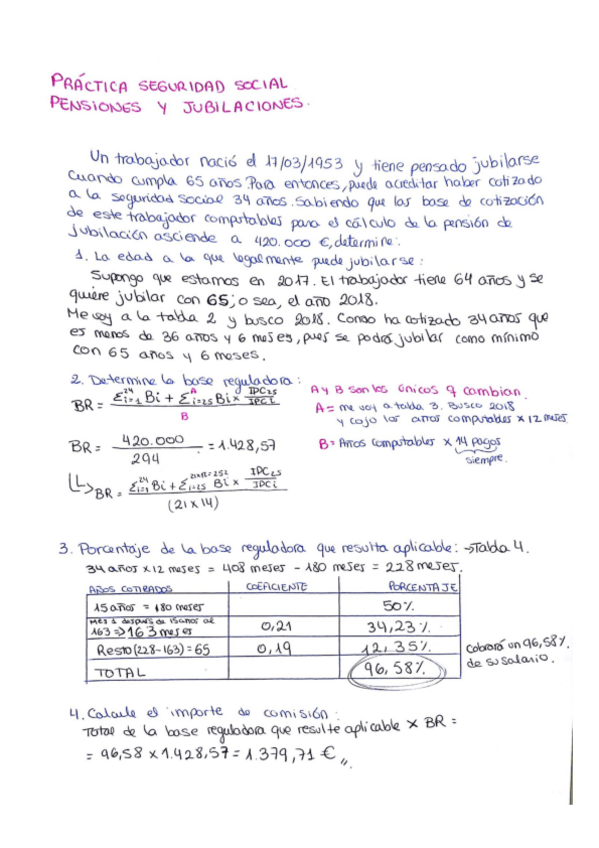 PRÁCTICA SEGURIDAD SOCIAL
PENSIONES Y JUBILACIONES.
Un trabajador nació el 17/03/1953 y tiene pensado jubilarse
cuando cumpla 65 años. Para entonces, puede acreditar haber cotizado
a la seguridad social 34 años. Sabiendo que las base de cotización
de este trabajador computables para el cálculo de la pensión de
jubilación asciende a 420.000 €, determine:
1. La edad a la que legalmente puede jubilarse:
Supongo que estamos en 2017. El trabajador tiene 64 años y se
quiere jubilar con 65; o sea, el año 2018.
Me voy a la tabla 2 y busco 2018. Como ha cotizado 34 años que
es menos de 36 años y 6 meses, pues se podrá jubilar como mínimo
con 65 años y 6 meses.
2. Determine la base reguladora:
BR = Σ i=1 24 Bi + Σ i=25 A Bi × IPC25 / IPCi
B
A y B son los únicos q cambian.
A = me voy a tabla 3. Busco 2018
y cojo los años computables × 12 meses
BR = 420.000 / 294 = 1.428,57
B = Años computables × 14 pagos
siempre.
BR = Σ i=1 24 Bi + Σ i=25 21x12=252 Bi × IPC25 / IPCi
(21 x 14)
3. Porcentaje de la base reguladora que resulta aplicable: →Tabla 4.
34 años x 12 meses = 408 meses - 180 meses = 228 meses.
AÑOS COTIZADOS COEFICIENTE PORCENTAJE
15 años = 180 meses 50%
Mes 1 después de 15 años al
163 => 163 meses 0,21 34,23%
Resto (228-163) = 65 0,19 12,35%
TOTAL 96,58%
Cobrará un 96,58%
de su salario.
4. Calcule el importe de comisión:
Total de la base reguladora que resulte aplicable × BR =
= 96,58 x 1.428,57 = 1.379,71 €